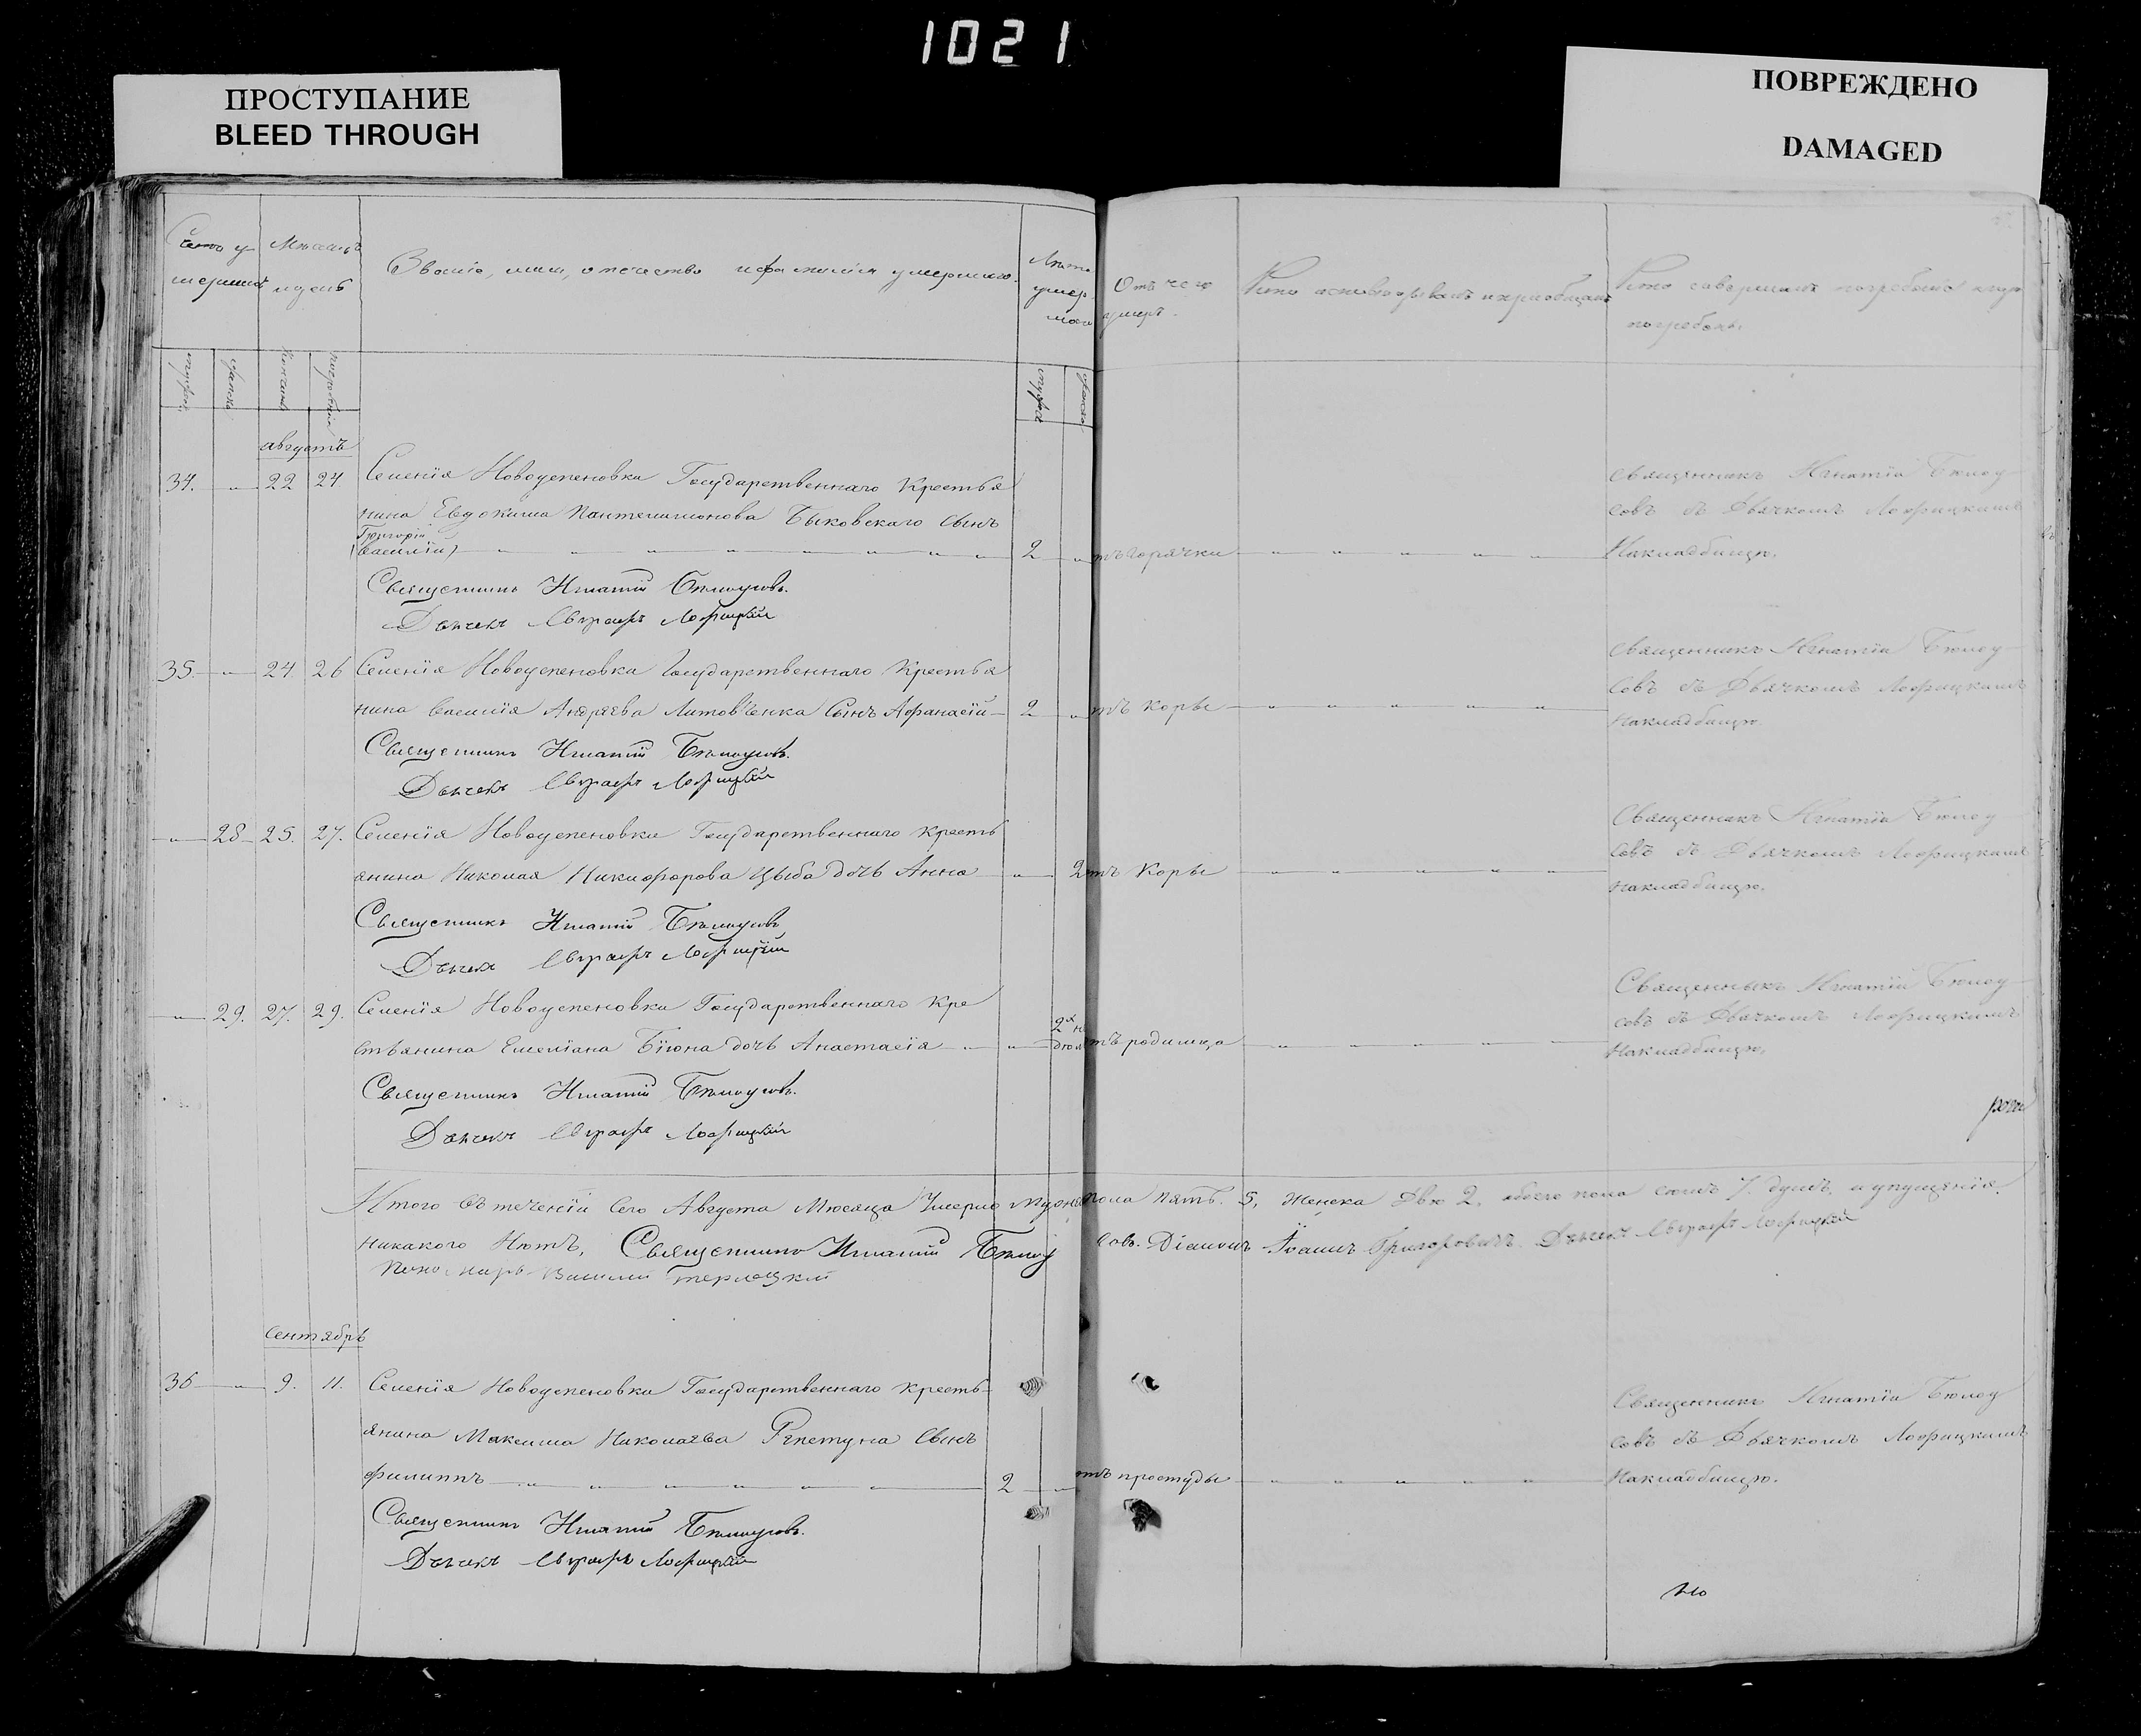 1021
ПРОСТУПАНИЕ
BLEED THROUGH
ПОВРЕЖДЕНО
DAMAGED
Счетъ у-
мершихъ
Мѣсяцъ
и день
Званіе, имя, отечество и фамилія умершаго.
Лѣта
умер-
шаго
Отъ чего
умеръ.
Кто исповѣдывалъ и пріобщалъ
Кто совершалъ погребеніе и гдѣ
погребены.
мужеск.
женска
кончины
погребенія
мужеск
женска
августъ
34. 22 24 Селенія Новоуспеновки Государственнаго Крестья
нина Евдокима Пантелимонова Быковскаго Сынъ
Григорій
(василій) 2 отъ Горячки
Священникъ Игнатій Бѣлоу
совъ съ Дьячкомъ Лофицкимъ
На кладбищѣ.
Священникъ Игнатій Бѣлоусовъ.
Дьячекъ Евграфъ Лофицкій
35. 24. 26 Селенія Новоуспеновка Государственнаго Крестья
нина Василія Андрѣева Литовченка Сынъ Афанасій 2 отъ Коры
Священникъ Игнатій Бѣлоу
совъ съ Дьячкомъ Лофицкимъ
на кладбищѣ.
Священникъ Игнатій Бѣлоусовъ.
Дьячекъ Евграфъ Лофицкій
28 25. 27. Селенія Новоуспеновки Государственнаго Кресть
янина Николая Никифорова Цыба дочь Анна 2 отъ Коры
Священникъ Игнатій Бѣлоу
совъ съ Дьячкомъ Лофицкимъ
на кладбищѣ.
Священникъ Игнатій Бѣлоусовъ
Дьячекъ Евграфъ Лофицкій
29. 27. 29. Селенія Новоуспеновки Государственнаго Кре
стьянина Емеліана Біюна дочь Анастасія 2х не
дѣл отъ родимца
Священникъ Игнатій Бѣлоу
совъ съ Дьячкомъ Лофицкимъ
На кладбищѣ,
Священникъ Игнатій Бѣлоусовъ.
Дьячекъ Евграфъ Лофицкій
Итого въ теченіи сего Августа Мѣсяца Умерло мужеска пола пять. 5, женска двѣ 2, обоего пола семь 7. душъ, а упущенія
никакого Нѣтъ, Священникъ Игнатій Бѣлоусовъ. Діаконъ Іоаннъ Григоровичъ. Дьячекъ Евграфъ Лофицкій
Пономарь Василій Терлецкій
Сентябрь
36 9. 11. Селенія Новоуспеновки Государственнаго Кресть-
янина Максима Николаева Рѣпетуна Сынъ
филиппъ 2 отъ простуды
Священникъ Игнатій Бѣлоу
совъ съ Дьячкомъ Лофицкимъ
На кладбищѣ.
Священникъ Игнатій Бѣлоусовъ.
Дьячекъ Евграфъ Лофицкій